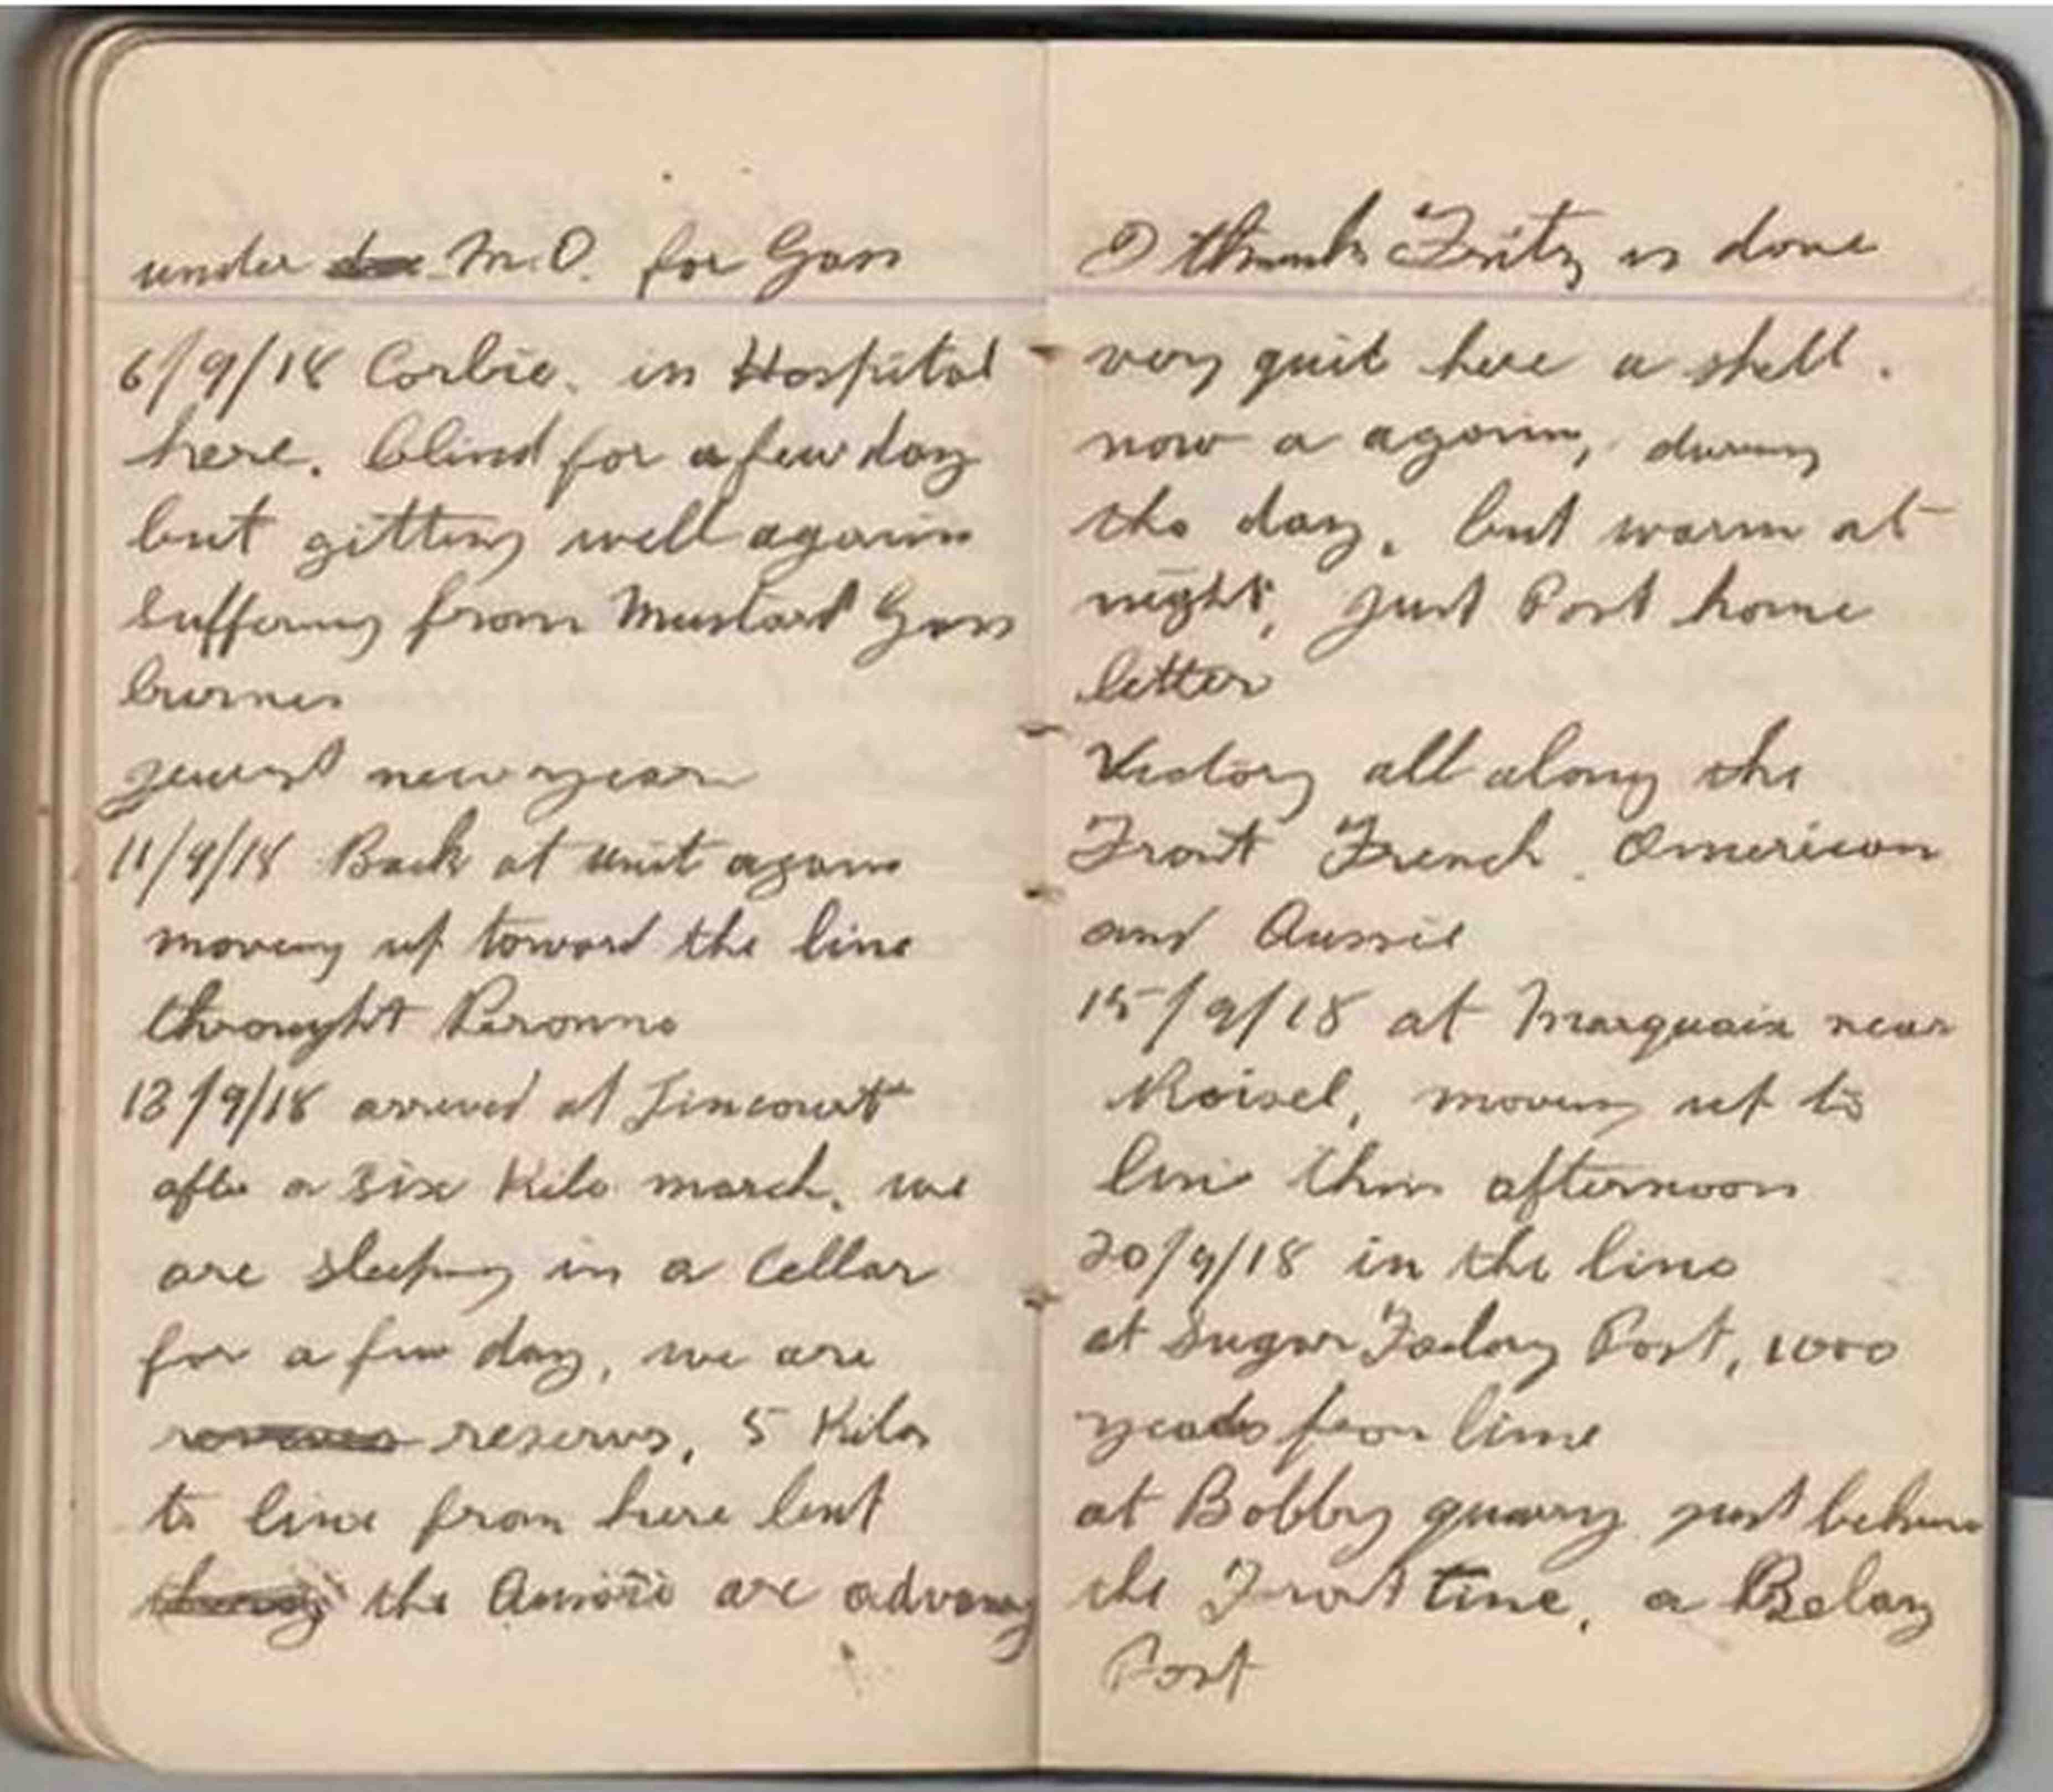 under M.O. for Gass
6/9/18 Corbie. in Hospital
here. blind for a few day
but gitting well again
suffering from Mustard Gass
burnes
jewist new year
11/9/18 Back at unit again
moving up toward the line
throught Peronne
13/9/18 arrived at Tincourt
after a six Kilo march. we
are sleeping in a cellar
for a few day, we are
reserves, 5 Kilos
to line from here but
the Aussie are advancing
I think Fritz is done
very quit here a shell.
now a again, during
the day, but warm at
night, just Post home
letter
Victory all along the
Front French American
and Aussie
15/9/18 at Marquaix near
Roisel, moving up to
line this afternoon
20/9/18 in the line
at Sugar Factory Post, 1000
yeads from line
at Bobby quarry just behind
the Front line, a Relay
Post